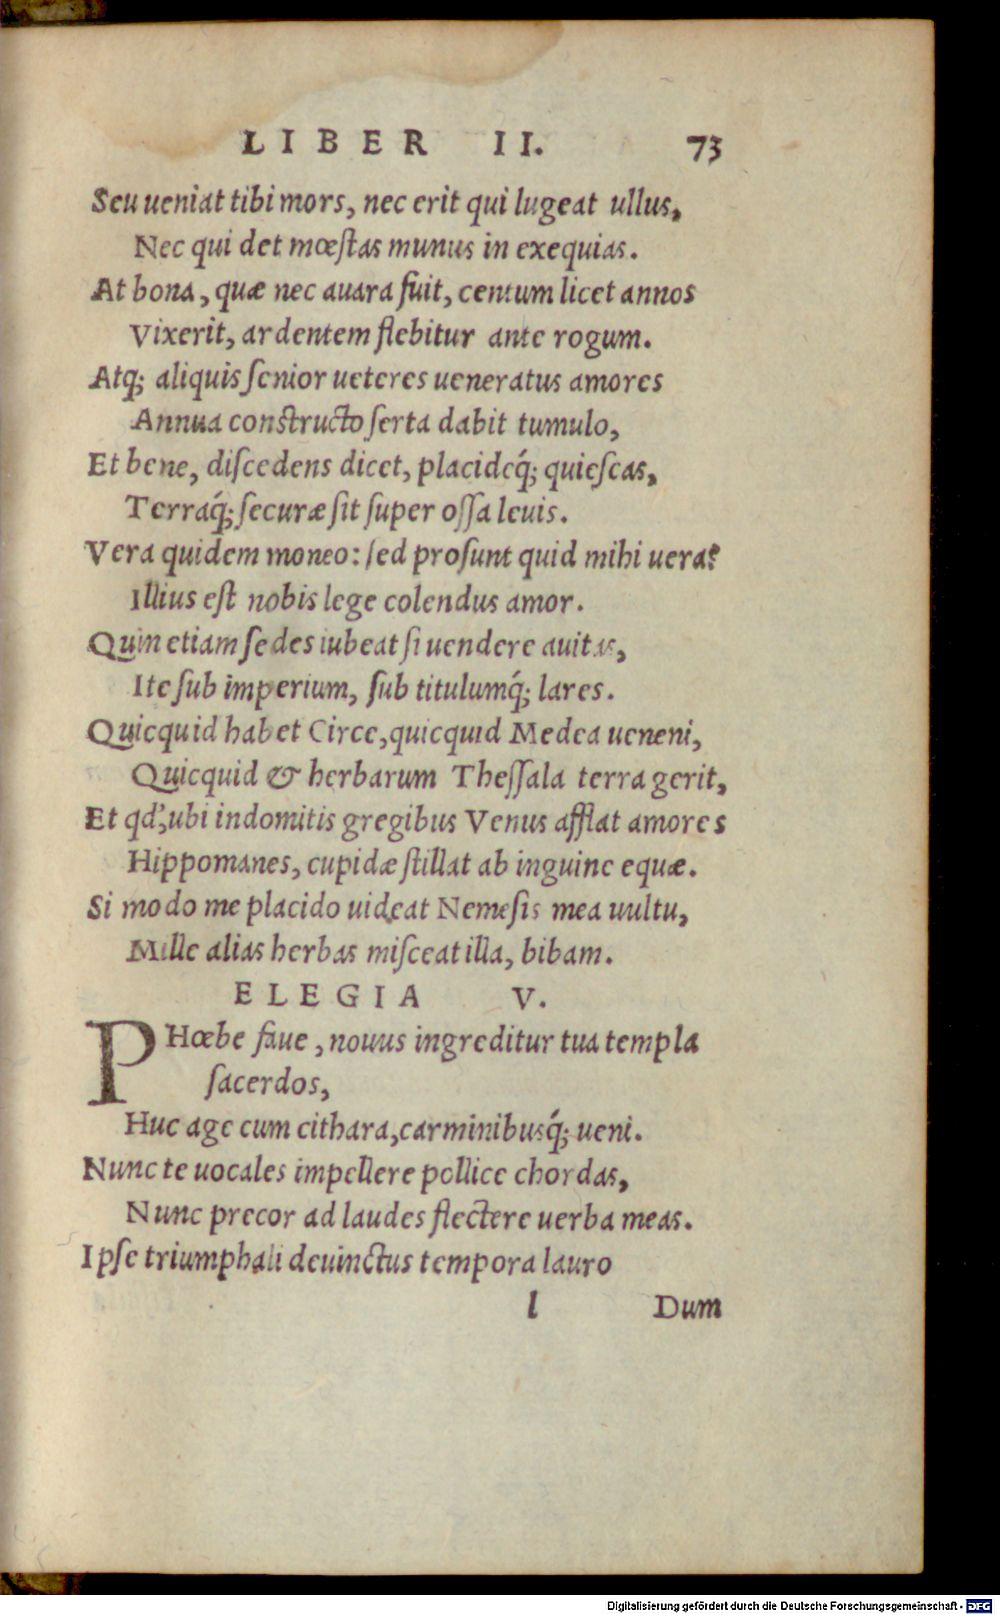 LIBER II. 73
Seu ueniat tibi mors, nec erit qui lugeat ullus,
Nec qui det mœſtas munus in exequias.
At bona, quæ nec auara fuit, centum licet annos
Vixerit, ardentem flebitur ante rogum.
Atq; aliquis ſenior ueteres ueneratus amores
Annua constructo ſerta dabit tumulo,
Et bene, diſcedens dicet, placideq́; quieſcas,
Terraq́; ſecuræ ſit ſuper oſſa leuis.
Vera quidem moneo: ſed proſunt quid mihi uera?
Illius eſt nobis lege colendus amor.
Quin etiam ſedes iubeat ſi uendere auitas,
Ite ſub imperium, ſub titulumq́; lares.
Quicquid habet Circe, quicquid Medea ueneni,
Quicquid & herbarum Theſſala terra gerit,
Et qd’, ubi indomitis gregibus Venus afflat amores
Hippomanes, cupidæ ſtillat ab inguine equæ.
Si modo me placido uideat Nemeſis mea uultu,
Mille alias herbas miſceat illa, bibam.
ELEGIA V.
PHœbe faue, nouus ingreditur tua templa
ſacerdos,
Huc age cum cithara, carminibusq́; ueni.
Nunc te uocales impellere pollice chordas,
Nunc precor ad laudes flectere uerba meas.
Ipſe triumphali deuinctus tempora lauro
l Dum
Digitalisierung gefördert durch die Deutsche Forschungsgemeinschaft - DFG